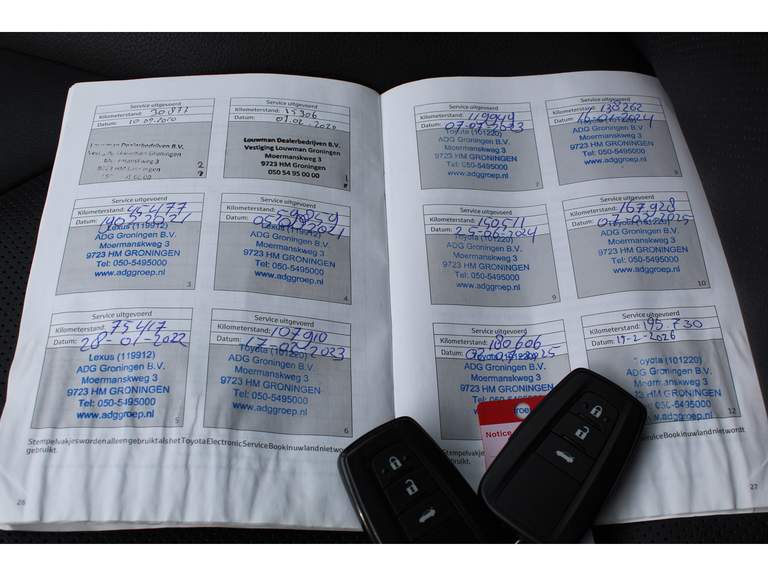 Service uitgevoerd
Kilometerstand: 30877
Datum: 10 09 2020
Louwman Dealerbedrijven B.V.
Vestiging Louwman Groningen
Moermanskweg 3
9723 HM Groningen
2
Service uitgevoerd
Kilometerstand: 15306
Datum: 01.02.2020
Louwman Dealerbedrijven B.V.
Vestiging Louwman Groningen
Moermanskweg 3
9723 HM Groningen
050 54 95 00 00
1
Service uitgevoerd
Kilometerstand: 45477
Datum:
Lexus (119912)
ADG Groningen B.V.
Moermanskweg 3
9723 HM GRONINGEN
Tel: 050-5495000
www.adggroep.nl
3
Service uitgevoerd
Kilometerstand: 59859
Datum:
Lexus (119912)
ADG Groningen B.V.
Moermanskweg 3
9723 HM GRONINGEN
Tel: 050-5495000
www.adggroep.nl
4
Service uitgevoerd
Kilometerstand: 75417
Datum: 28-01-2022
Lexus (119912)
ADG Groningen B.V.
Moermanskweg 3
9723 HM GRONINGEN
Tel: 050-5495000
www.adggroep.nl
5
Service uitgevoerd
Kilometerstand: 107910
Datum: 17-02-2023
Toyota (101220)
ADG Groningen B.V.
Moermanskweg 3
9723 HM GRONINGEN
Tel: 050-5495000
www.adggroep.nl
6
Stempelvakjes worden alleen gebruikt als het Toyota Electronic Service Book in uw land niet wordt
gebruikt.
26
Service uitgevoerd
Kilometerstand: 119949
Datum: 07-07-2023
Toyota (101220)
ADG Groningen B.V.
Moermanskweg 3
9723 HM GRONINGEN
Tel: 050-5495000
www.adggroep.nl
7
Service uitgevoerd
Kilometerstand: 138262
Datum: 2024
Toyota (101220)
ADG Groningen B.V.
Moermanskweg 3
9723 HM GRONINGEN
Tel: 050-5495000
www.adggroep.nl
8
Service uitgevoerd
Kilometerstand: 150511
Datum: 25-06-2024
Toyota (101220)
ADG Groningen B.V.
Moermanskweg 3
9723 HM GRONINGEN
Tel: 050-5495000
www.adggroep.nl
9
Service uitgevoerd
Kilometerstand: 167928
Datum: 2025
Toyota (101220)
ADG Groningen B.V.
Moermanskweg 3
9723 HM GRONINGEN
Tel: 050-5495000
www.adggroep.nl
10
Service uitgevoerd
Kilometerstand: 180606
Datum: 2025
ADG Groningen B.V.
Moermanskweg 3
9723 HM GRONINGEN
Tel: 050-5495000
Service uitgevoerd
Kilometerstand: 195.730
Datum: 19-2-2026
Toyota (101220)
ADG Groningen B.V.
Moermanskweg 3
GRONINGEN
5495000
12
Notice
Service Book in uw land niet wordt
gebruikt.
27